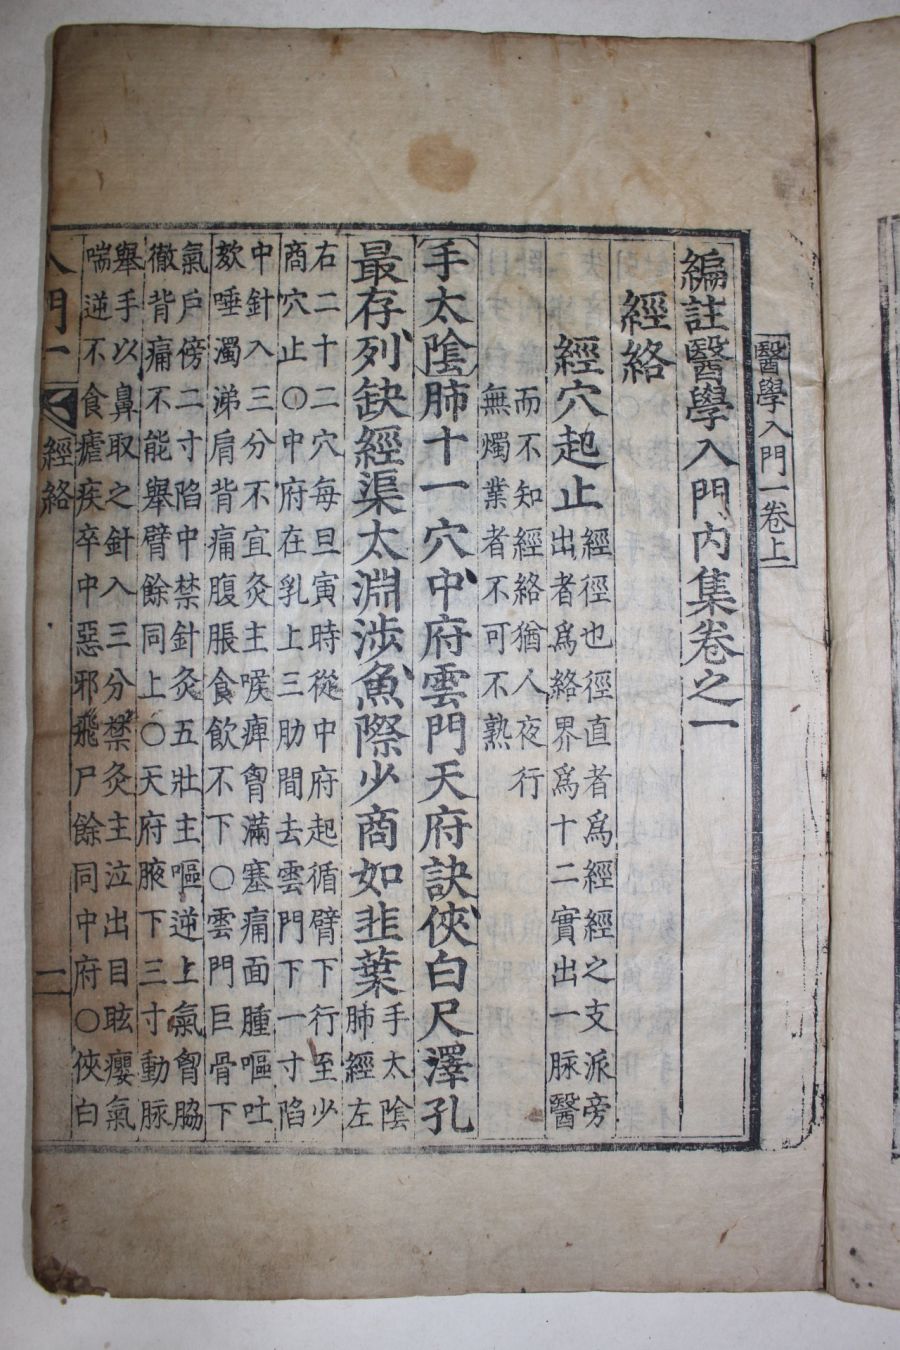 醫學入門一卷上
編註醫學入門內集卷之一
經絡
經穴起止 經徑也徑直者爲經經之支派旁
出者爲絡界爲十二實出一脉醫
而不知經絡猶人夜行
無燭業者不可不熟
手太陰肺十一穴中府雲門天府訣俠白尺澤孔
最存列缺經渠太淵涉魚際少商如韭葉 手太陰
肺經左
右二十二穴每旦寅時從中府起循臂下行至少
商穴止○中府在乳上三肋間去雲門下一寸陷
中針入三分不宜灸主喉痺胷滿塞痛面腫嘔吐
欬唾濁涕肩背痛腹脹食飮不下○雲門巨骨下
氣戶傍二寸陷中禁針灸五壯主嘔逆上氣胷脇
徹背痛不能舉臂餘同上○天府腋下三寸動脉
舉手以鼻取之針入三分禁灸主泣出目眩癭氣
喘逆不食瘧疾卒中惡邪飛尸餘同中府○俠白
入門一 經絡 一